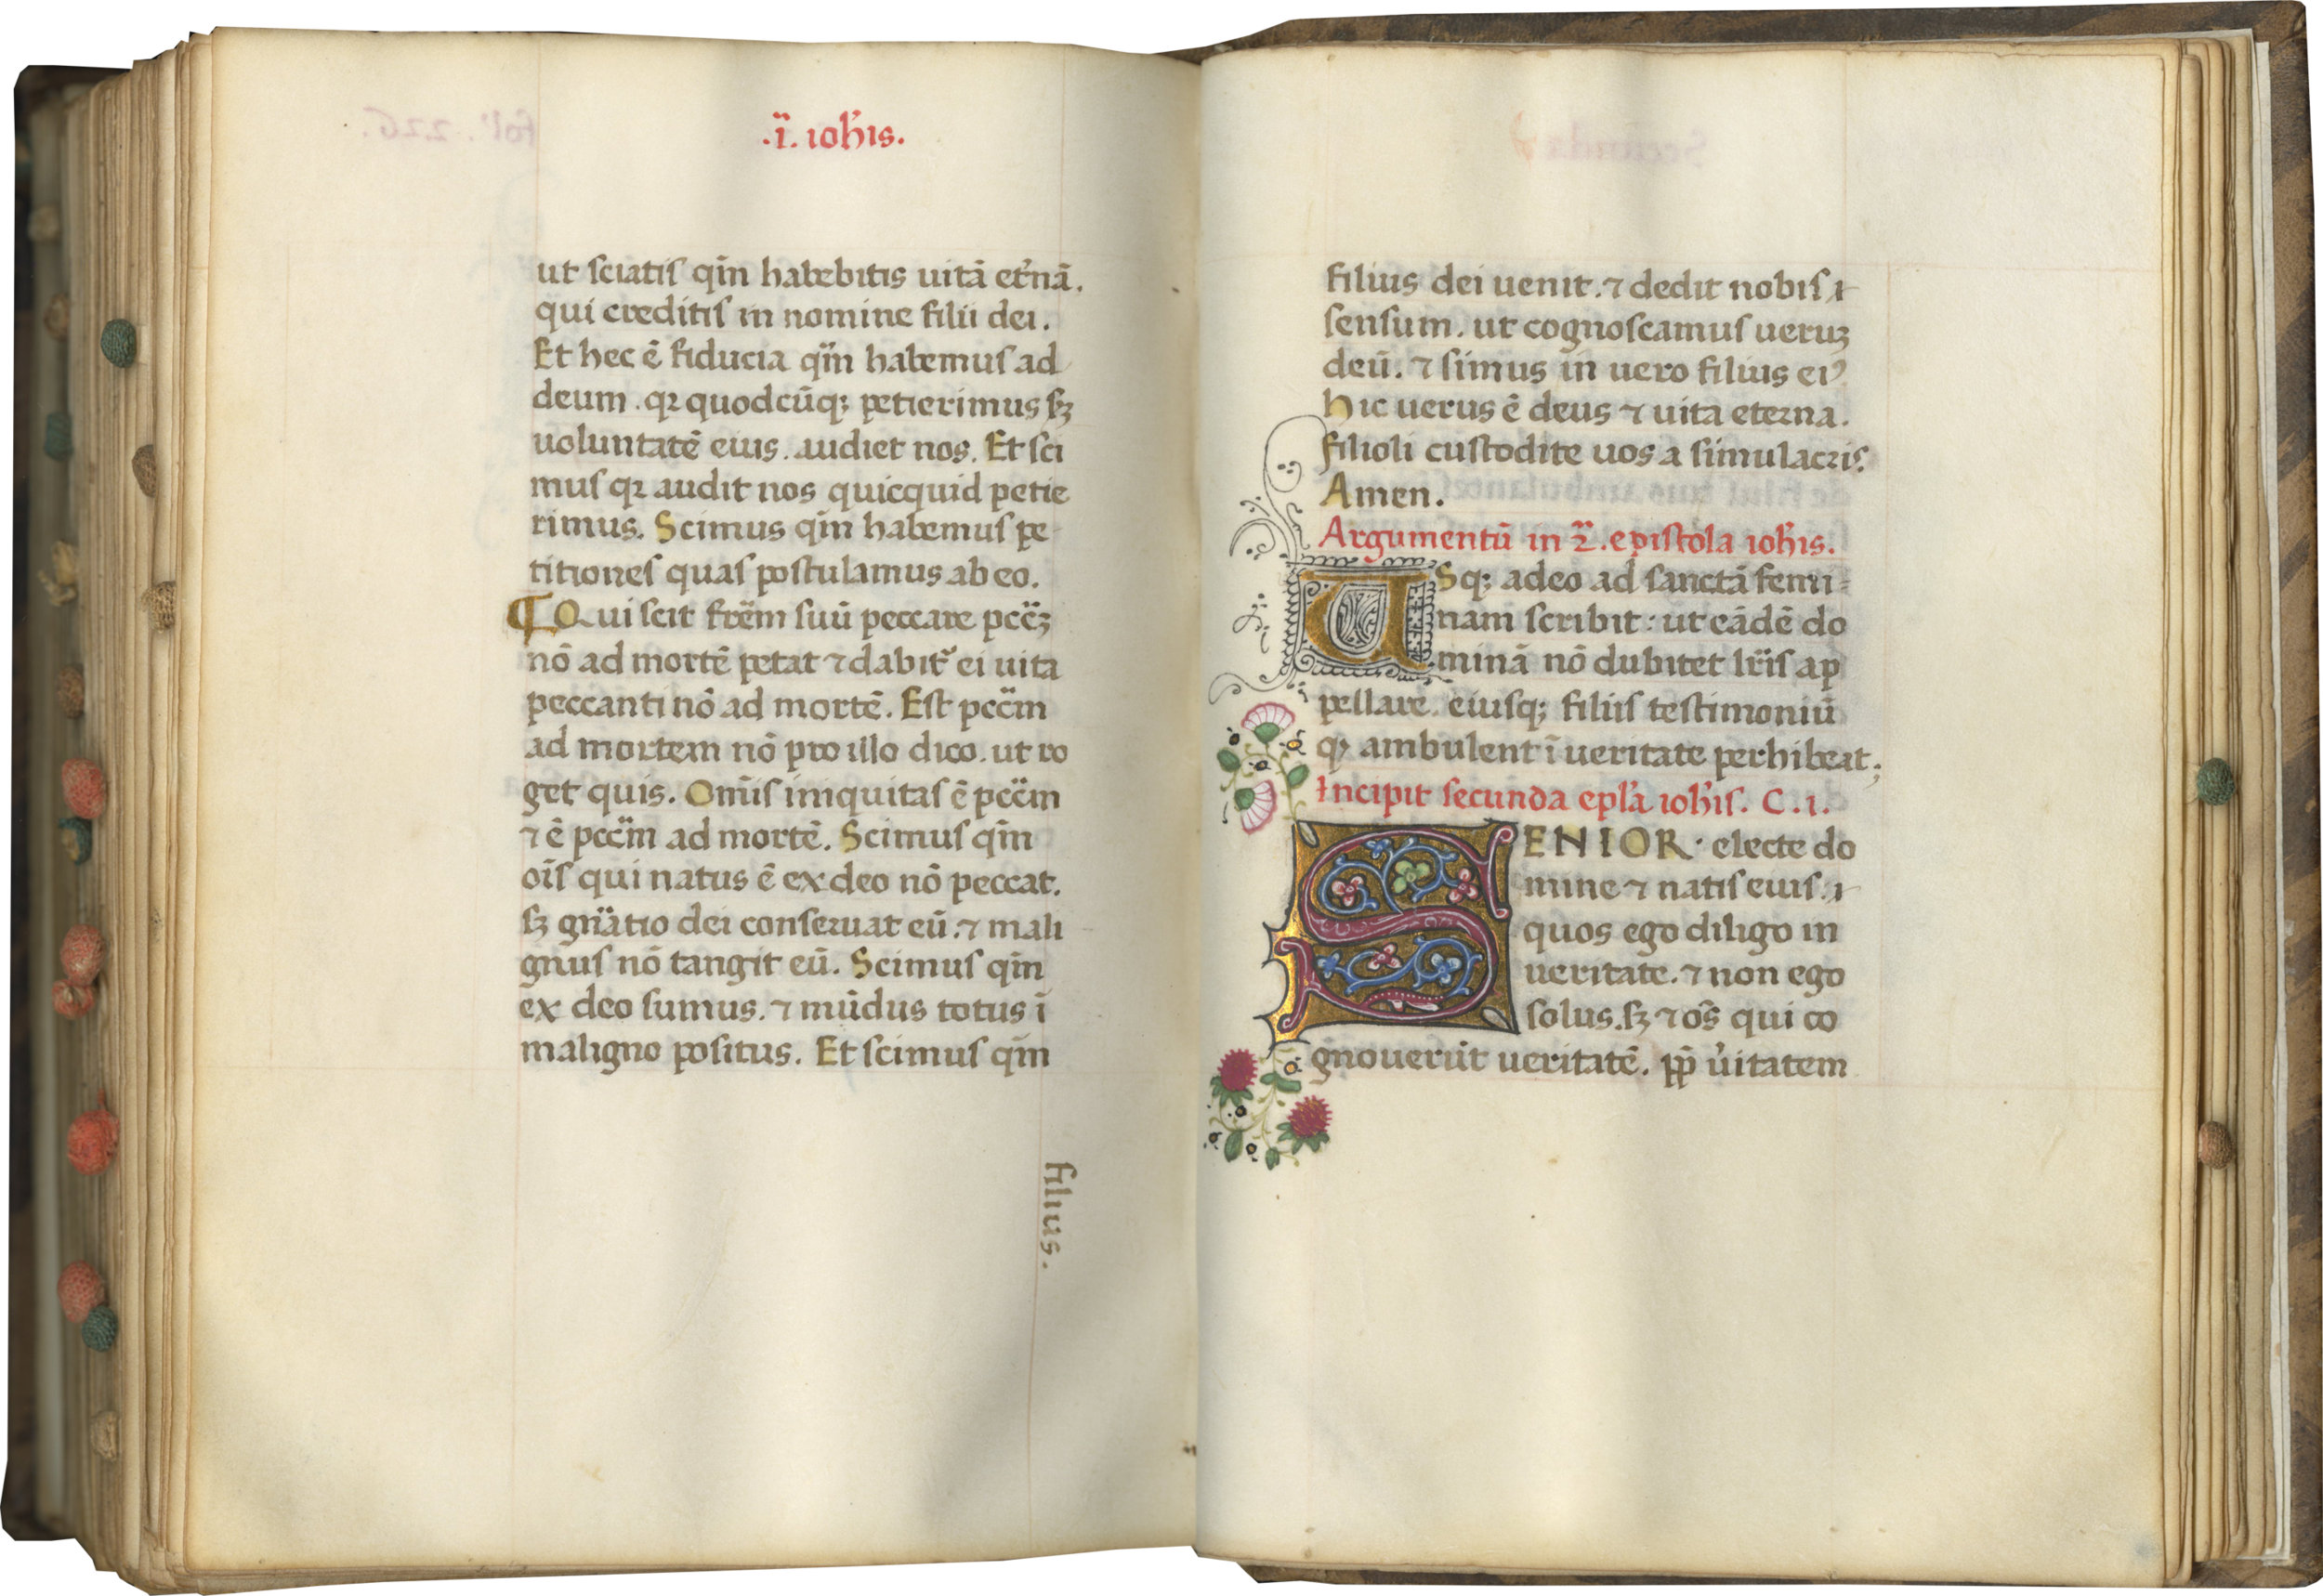 .i. ioh̅is.
ut sciatis qm̅ habebitis uitā et̓nā.
qui creditis in nomine filii dei.
Et hec ē fiducia qm̅ habemus ad
deum. qꝛ quodcūqꝫ petierimus sꝫ
uoluntatē eius. audiet nos. Et sci
mus qꝛ audit nos quicquid petie
rimus. Scimus qm̅ habemus pe
titiones quas postulamus ab eo.
¶ Qui scit frēm suū peccare pccꝫ
nō ad mortē petat ⁊ dabit̓ ei uita
peccanti nō ad mortē. Est pcc̄m
ad mortem nō pro illo dico. ut ro
get quis. Om̄is iniquitas ē pcc̄m
⁊ ē pcc̄m ad mortē. Scimus qm̅
oīs qui natus ē ex deo nō peccat.
sꝫ gn̄atio dei conseruat eū. ⁊ mali
gnus nō tangit eū. Scimus qm̅
ex deo sumus. ⁊ mūdus totus ī
maligno positus. Et scimus qm̅
filius.
filius dei uenit. ⁊ dedit nobis
sensum. ut cognoscamus ueruꝫ
deū. ⁊ simus in uero filius eiꝰ
hic uerus ē deus ⁊ uita eterna.
filioli custodite uos a simulacris.
Amen.
Argumentū in 2. epistola ioh̅is.
USqꝫ adeo ad sanctā femi-
nam scribit: ut eādē do
minā nō dubitet lr̄is ap
pellare. eiusqꝫ filiis testimoniū
qꝫ ambulent ī ueritate perhibeat;
Incipit secunda epl̓a ioh̅is. C. i.
SENIOR electe do
mine ⁊ natis euis.
quos ego diligo in
ueritate. ⁊ non ego
solus. sꝫ ⁊ oēs qui co
gnouerūt ueritatē. pp̄ u̓itatem